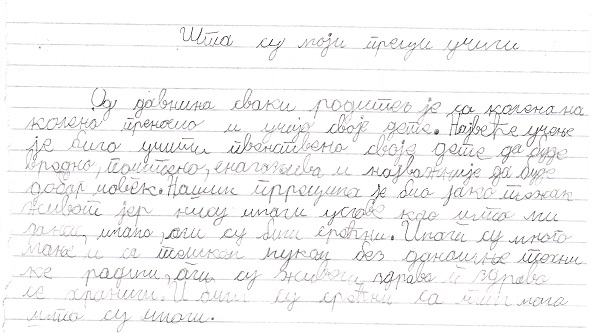 Шта су моји преци учили
Од давнина сваки родитељ је са колена на
колено преносио и учио своје дете. Највеће учење
је било учити првенствено своје дете да буде
вредно, поштено, и најважније да буде
добар човек. Нашим је био јако тежак
живот јер нису имали услове као што ми
данас имамо, али су били срећни. Имали су много
мање и са тешком муком без данашње техни
ке радили, али су живели здраво и здраво
се хранили. И били су срећни са тим мало
што су имали.